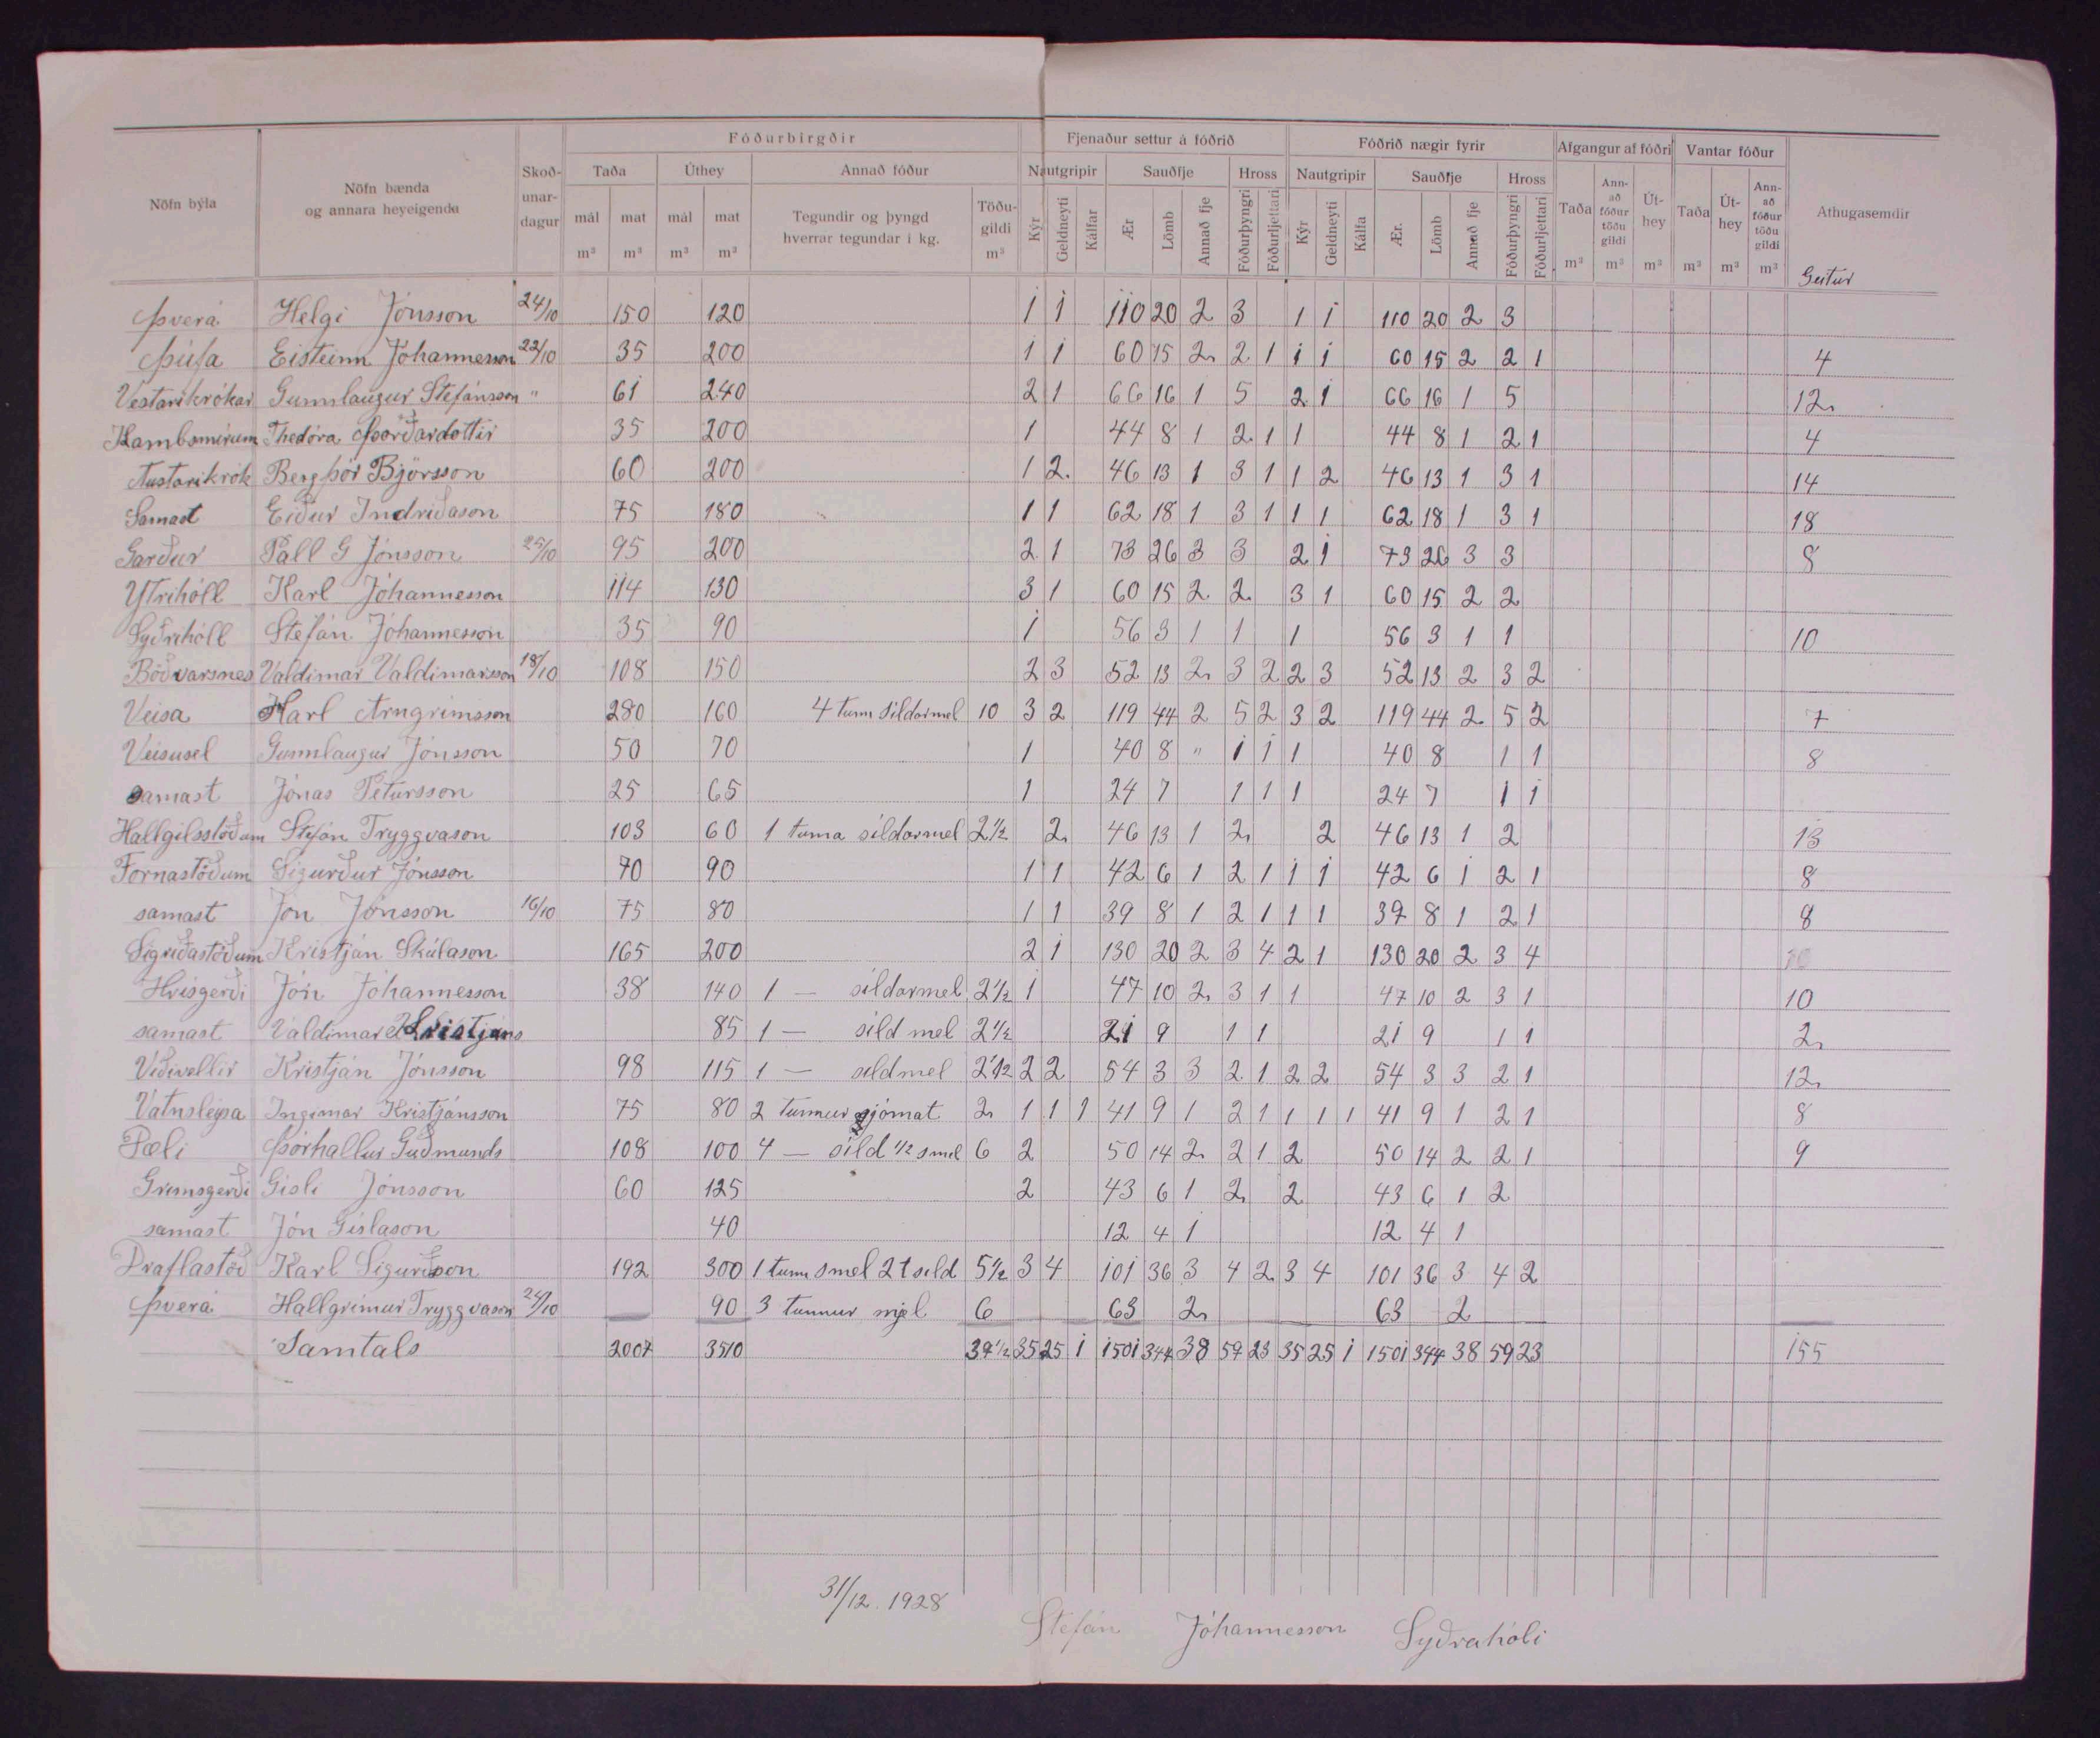 Fóðurbirgðir Fjenaður settur á fóðrið Fóðrið nægir fyrir Afgangur af fóðri Vantar fóður
Nöfn býla Nöfn bænda og annara heyeigenda Skoð-unar-dagur Taða Úthey Annað fóður Nautgripir Sauðfje Hross Nautgripir Sauðfje Hross Taða Ann-að fóður töðu gildi Út-hey Taða Út-hey Ann-að fóður töðu gildi Athugasemdir
mál m³ mat m³ mál m³ mat m³ Tegundir og þyngd hverrar tegundar í kg. Töðu-gildi m³ Kýr Geldneyti Kálfar Ær Lömb Annað fje Fóðurþyngri Fóðurljettari Kýr Geldneyti Kálfa Ær. Lömb Annað fje Fóðurþyngri Fóðurljettari m³ m³ m³ m³ m³ m³
Þverá Helgi Jónsson 24/10 150 120 1 1 110 20 2 3 1 1 110 20 2 3
Þúfa Eisteinn Jóhannesson 22/10 35 200 1 1 60 15 2 2 1 1 1 60 15 2 2 1 4
Vestarikrókar Gunnlaugur Stefánsson " 61 240 2 1 66 16 1 5 2 1 66 16 1 5 12
Kambsmýrum Thedóra Þorðardottir 35 200 1 44 8 1 2 1 1 44 8 1 2 1 4
Austarikrók Bergþór Björsson 60 200 1 2 46 13 1 3 1 1 2 46 13 1 3 1 14
Samast Eiður Indriðason 75 180 1 1 62 18 1 3 1 1 1 62 18 1 3 1 18
Garður Páll G Jónsson 25/10 95 200 2 1 73 26 3 3 2 1 73 26 3 3 8
Ytrihóll Karl Jóhannesson 114 130 3 1 60 15 2 2 3 1 60 15 2 2
Syðrihóll Stefán Jóhannesson 35 90 1 56 3 1 1 1 56 3 1 1 10
Böðvarsnes Valdimar Valdimarsson 18/10 108 150 2 3 52 13 2 3 2 2 3 52 13 2 3 2
Veisa Karl Arngrimsson 280 160 4 tunn sildarmel 10 3 2 119 44 2 5 2 3 2 119 44 2 5 2 7
Veisusel Gunnlaugur Jónsson 50 70 1 40 8 " 1 1 1 40 8 1 1 8
samast Jónas Petursson 25 65 1 24 7 1 1 1 24 7 1 1
Hallgilsstöðum Stefán Tryggvason 103 60 1 tunna sildarmel 2½ 2 46 13 1 2 2 46 13 1 2 13
Fornastöðum Sigurður Jónsson 70 90 1 1 42 6 1 2 1 1 1 42 6 1 2 1 8
samast Jón Jónsson 16/10 75 80 1 1 39 8 1 2 1 1 1 39 8 1 2 1 8
Sigriðastöðum Kristján Skúlason 165 200 2 1 130 20 2 3 4 2 1 130 20 2 3 4
Hrisgerði Jón Jóhannesson 38 140 1 — sildarmel 2½ 1 47 10 2 3 1 1 47 10 2 3 1 10
samast Valdimar Kristjáns 85 1 — sild mel 2½ 21 9 1 1 21 9 1 1 2
Viðivellir Kristján Jónsson 98 115 1 — sildmel 2½ 2 2 54 3 3 2 1 2 2 54 3 3 2 1 12
Vatnsleysa Ingimar Kristjánsson 75 80 2 tunnur sjómat 2 1 1 1 41 9 1 2 1 1 1 1 41 9 1 2 1 8
Pæli Þórhallur Guðmunds 108 100 4 — sild ½ smel 6 2 50 14 2 2 1 2 50 14 2 2 1 9
Grimsgerði Gisli Jónsson 60 125 2 43 6 1 2 2 43 6 1 2
samast Jón Gislason 40 12 4 1 12 4 1
Draflastöð Karl Sigurðson 192 300 1 tunn smel 2 t sild 5½ 3 4 101 36 3 4 2 3 4 101 36 3 4 2
Þverá Hallgrímur Tryggvason 24/10 90 3 tunnur mjel 6 63 2 63 2
Samtals 2007 3510 39½ 35 25 1 1501 344 38 59 23 35 25 1 1501 344 38 59 23 155
31/12. 1928
Stefán Jóhannesson Syðrahóli